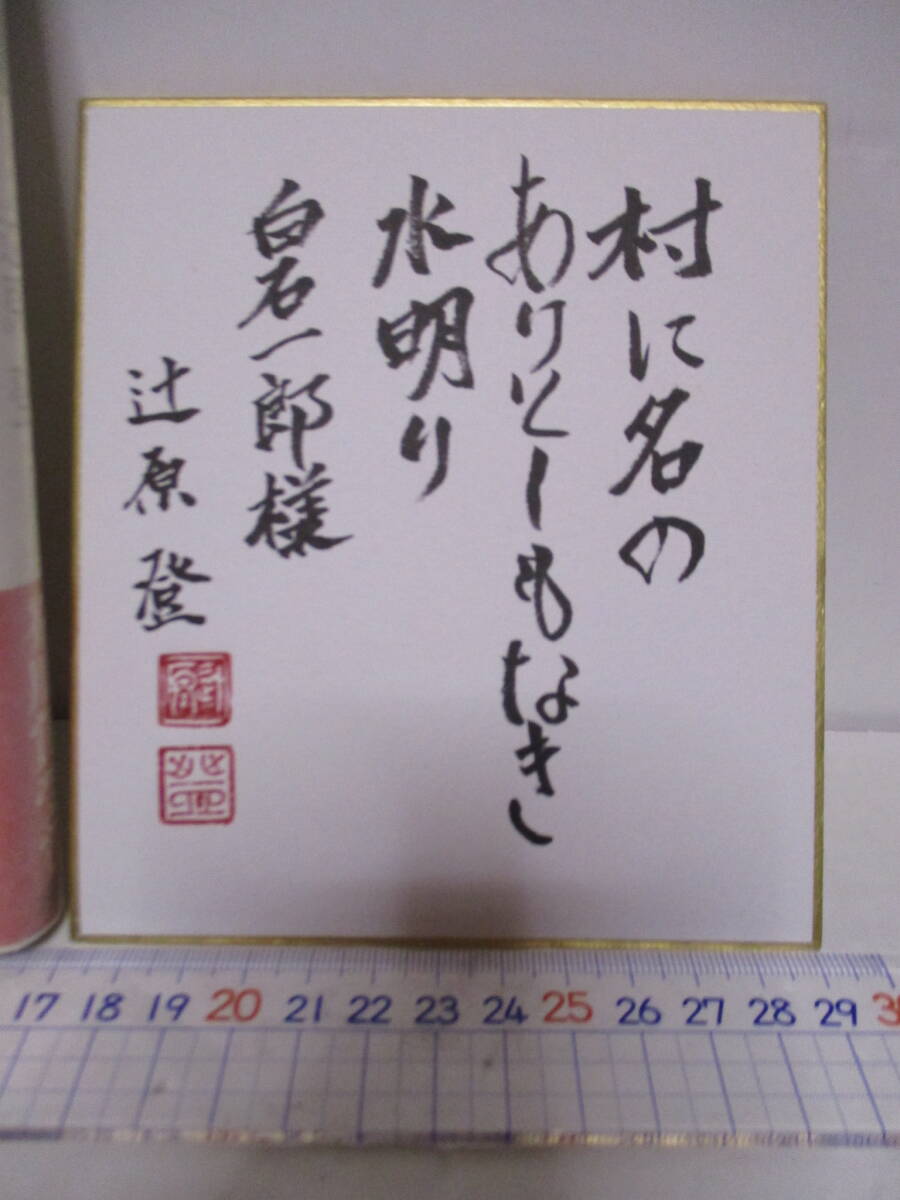 村に名の
ありとしもなき
水明り
白石一郎様
辻原登
17 18 19 20 21 22 23 24 25 26 27 28 29